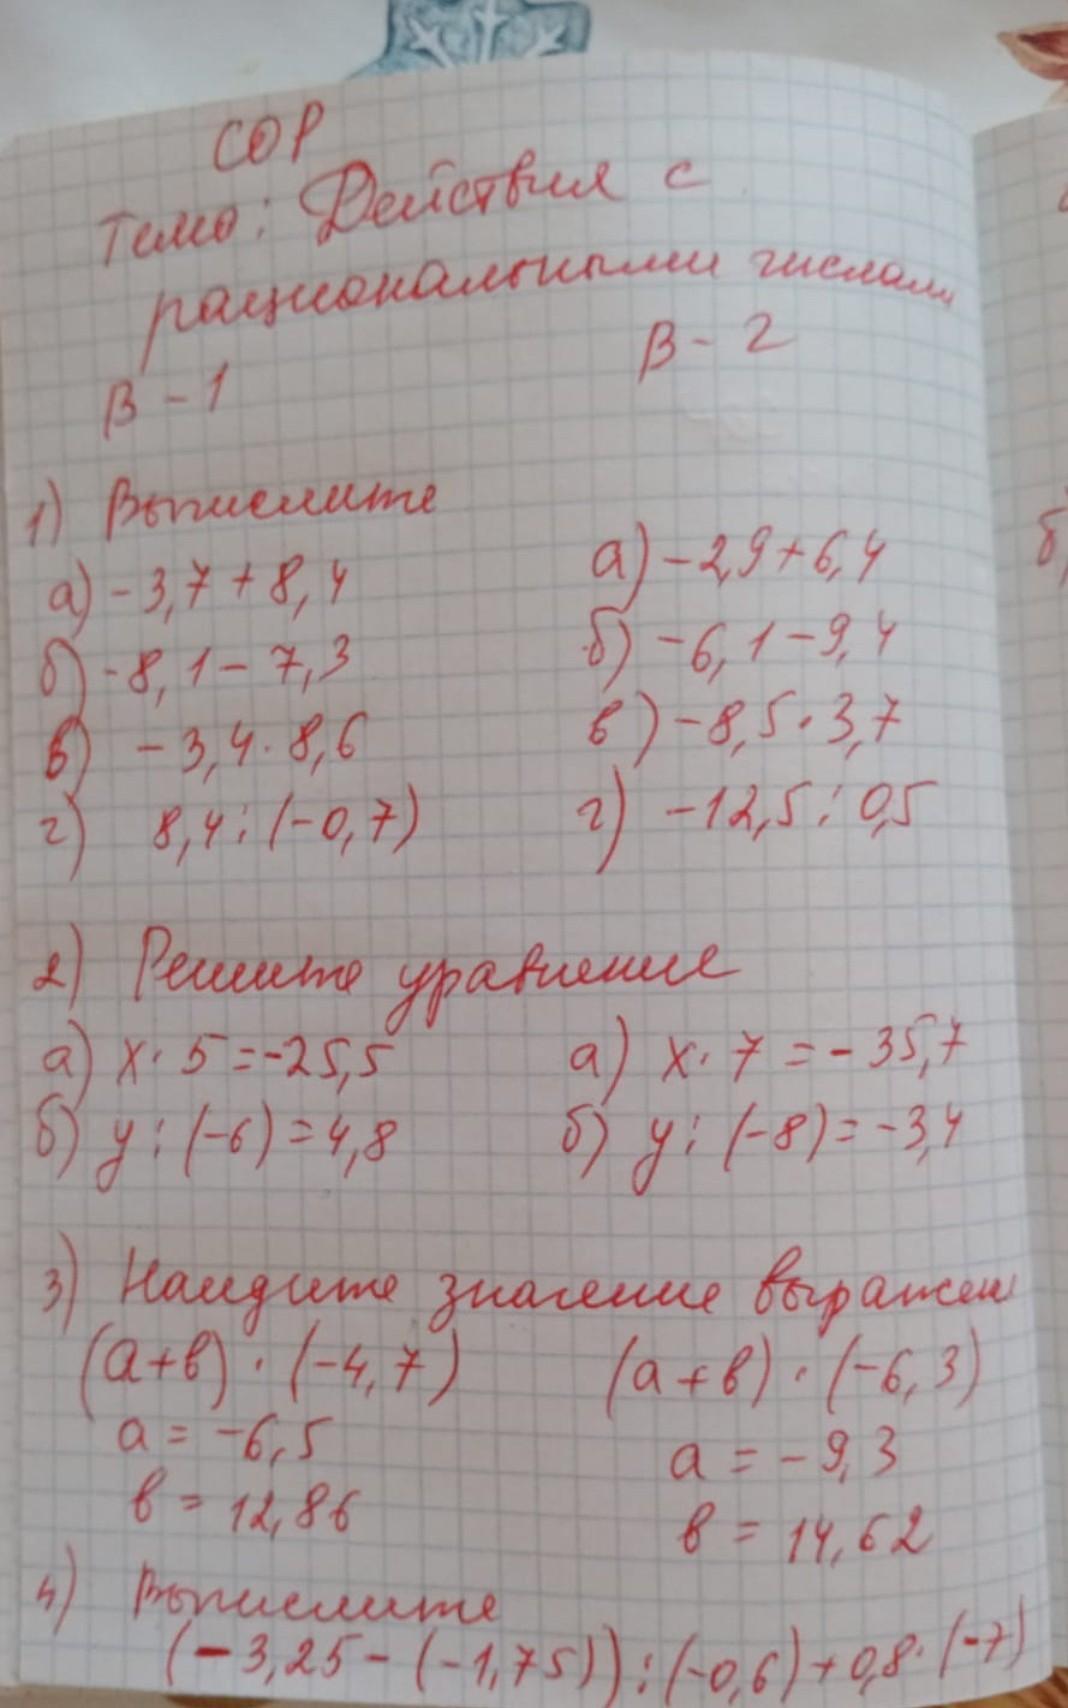 СОР
Тема: Действия с
рациональными числами
В - 1 В - 2
1) Вычислите
а) -3,7 + 8,4 а) -2,9 + 6,4
б) -8,1 - 7,3 б) -6,1 - 9,4
в) -3,4 · 8,6 в) -8,5 · 3,7
г) 8,4 : (-0,7) г) -12,5 : 0,5
2) Решите уравнение
а) х · 5 = -25,5 а) х · 7 = -35,7
б) у : (-6) = 4,8 б) у : (-8) = -3,4
3) Найдите значение выражен
(а+в) · (-4,7) (а+в) · (-6,3)
а = -6,5 а = -9,3
в = 12,86 в = 14,62
4) Вычислите
(-3,25 - (-1,75)) : (-0,6) + 0,8 · (-7)
б)